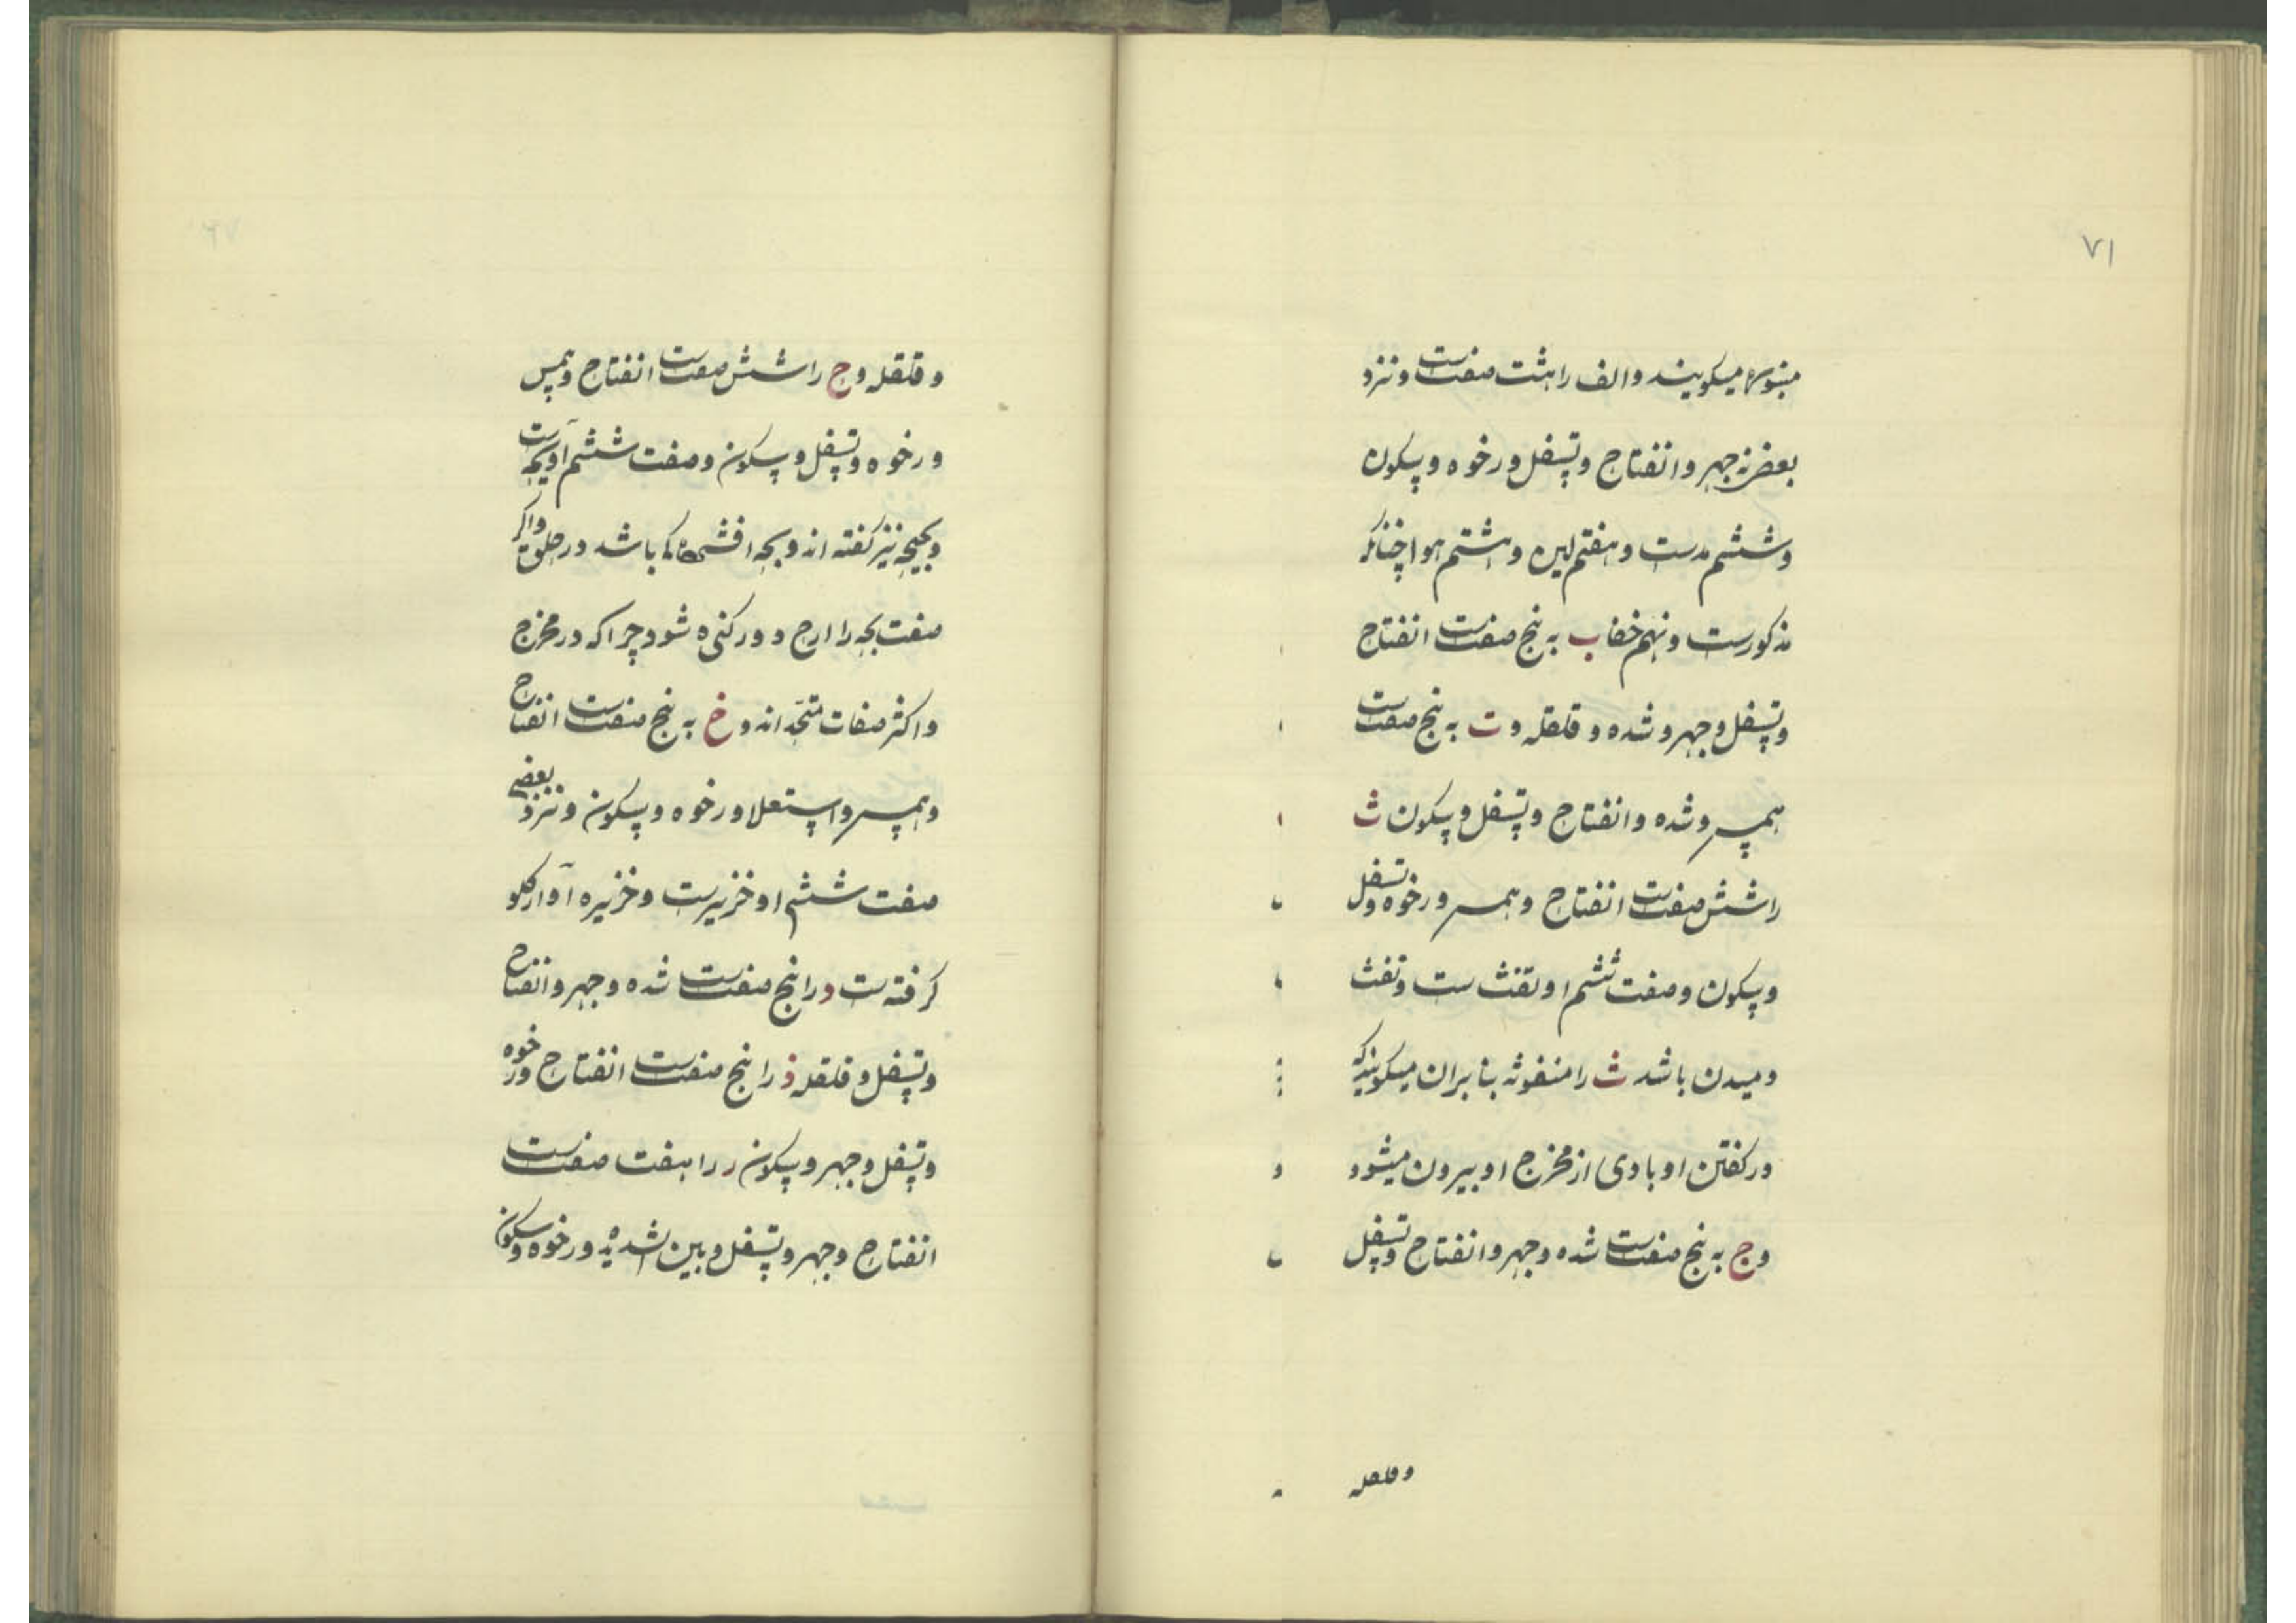 ۷۱
میگویند و الف را هشت صفتست و نزد
بعضی نه جهر و انفتاح و تسفل و رخوه و سکون
و ششم مدست و هفتم لین و هشتم هوا چنانکه
مذکورست و نهم خفا ب به پنج صفتست انفتاح
و تسفل و جهر و شده و قلقله و ت به پنج صفتست
همس و شده و انفتاح و تسفل و سکون ث
را شش صفتست انفتاح و همس و رخوه و تسفل
و سکون و صفت ششم او تفث ست و تفث
دمیدن باشد ث را منفوثه بنابران میگویند که
در گفتن او بادی از مخرج او بیرون میشود
و ج به پنج صفتست شده و جهر و انفتاح و تسفل
و قلقله
و قلقله و ح را شش صفتست انفتاح و همس
و رخوه و تسفل و سکون و صفت ششم او بحه است
و بحیحه نیز گفته اند و بحه که باشد در حلق و اگر
صفت بحه را از ح دور کنی ه شود چرا که در مخرج
و اکثر صفات متحد اند و خ به پنج صفتست انفتاح
و همس و استعلا و رخوه و سکون و نزد بعضی
صفت ششم او خزیرست و خزیره آواز گلو
گرفته ست د را پنج صفتست شده و جهر و انفتاح
و تسفل و قلقله ذ را پنج صفتست انفتاح و رخوه
و تسفل و جهر و سکون ر را هفت صفتست
انفتاح و جهر و تسفل و بین الشدیده و رخوه و سکون